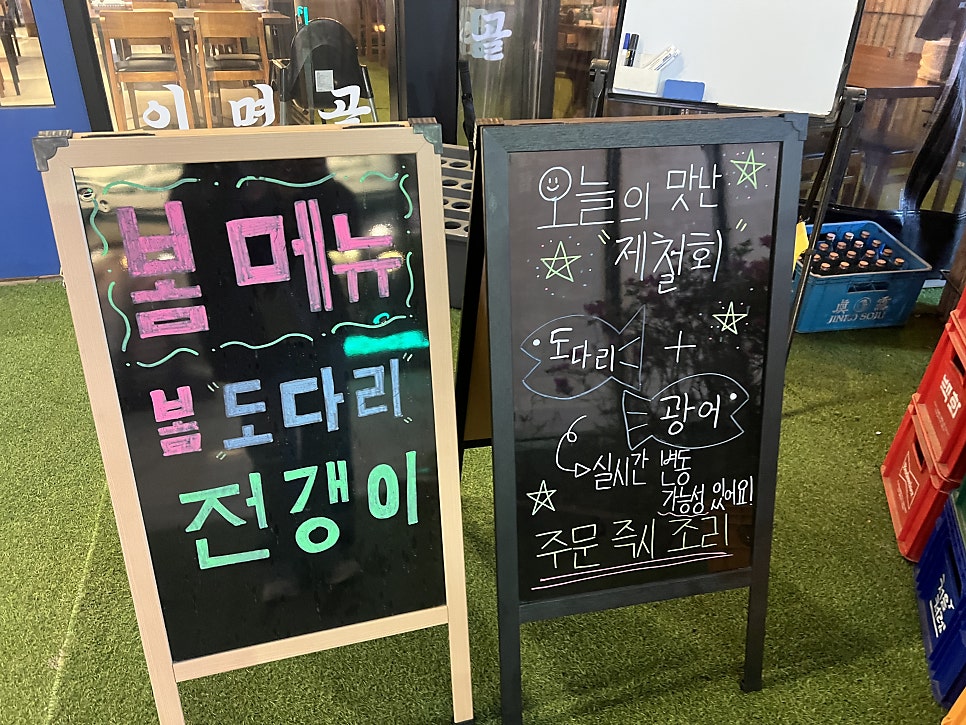 골
이명골
봄 메뉴
봄 "도다리"
전갱이
오늘의 맛난
"제철회"
도다리 +
광어
실시간 변동
가능성 있어요!
주문 즉시 조리
眞露
JINRO SOJU